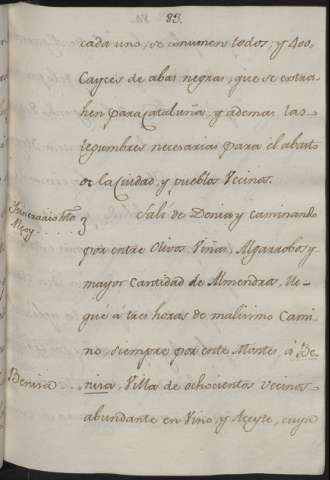 89.
cada uno, se consumen todos, y 400.
Cayces de abas negras, que se extra-
hen para Cataluña, y ademas las
legumbres necesarias para el abasto
de la Ciudad, y pueblos Vecinos.
Itinerario hta
Alcoy ..... 3
Salí de Denia y caminando
por entre Olivos, Viñas, Algarrobos y
mayor Cantidad de Almendros, lle-
gué á tres horas de malisimo Cami-
no, siempre por entre Montes, á Be-
Benisa ..
nisa, Villa de ochocientos vecinos
abundante en Vino, y Azeyte, cuya